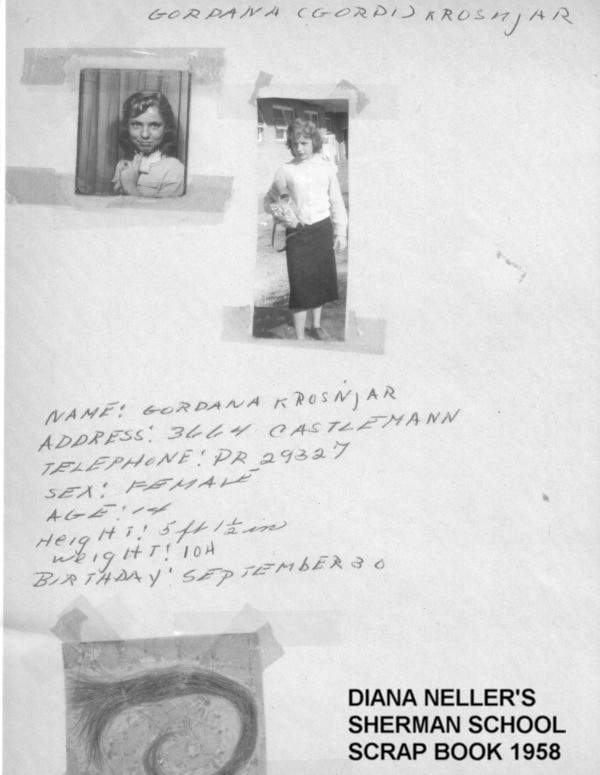 GORDANA (GORDI) KROSNJAR
NAME: GORDANA KROSNJAR
ADDRESS: 3664 CASTLEMANN
TELEPHONE: PR 29327
SEX: FEMALE
AGE: 14
HeigHT: 5 ft 1½ in
weigHT: 104
BIRTHDAY: SEPTEMBER 30
DIANA NELLER'S
SHERMAN SCHOOL
SCRAP BOOK 1958